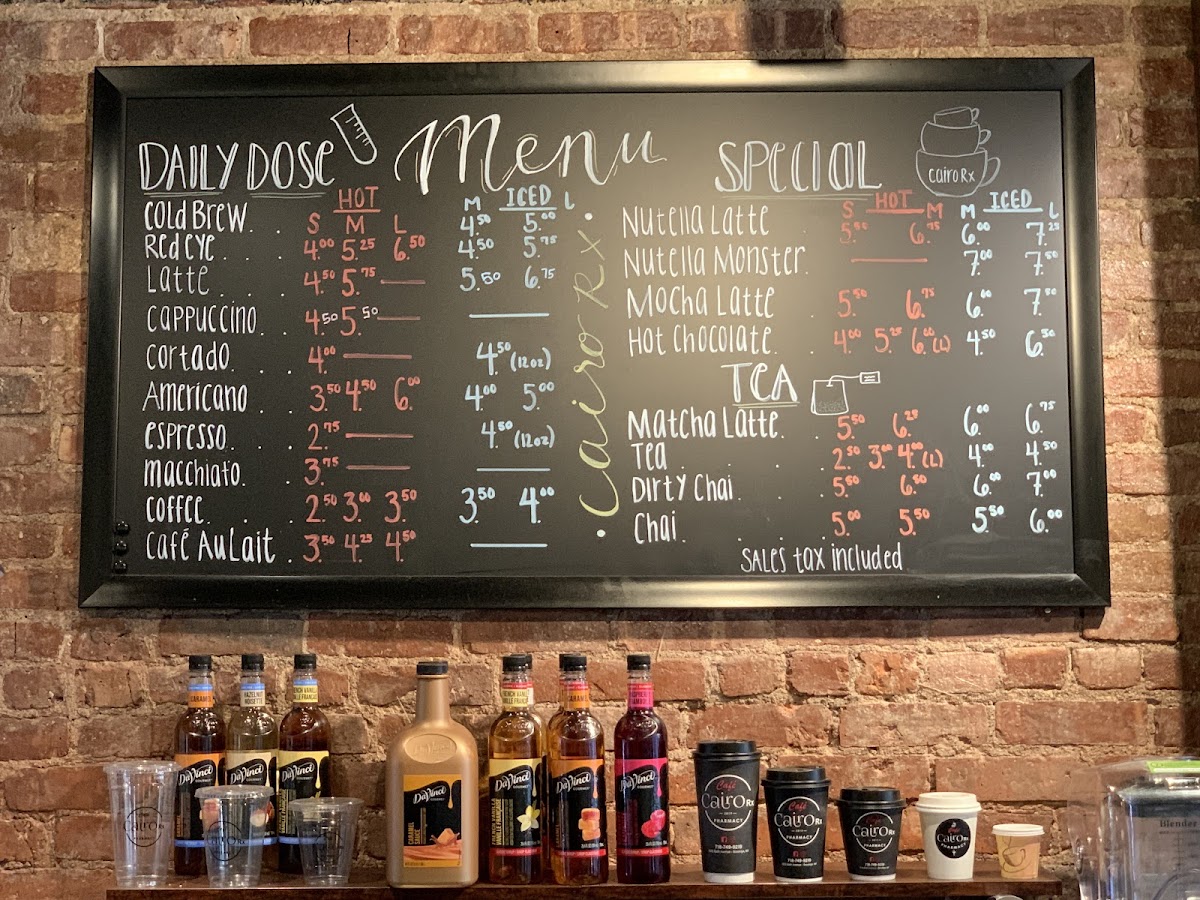 DAILY DOSE
Menu
HOT
S M L
ICED
M L
COLD BREW. . 4.50 5.00
Red eye . . . . 4.00 5.25 6.50 4.50 5.75
Latte . 4.50 5.75 — 5.50 6.75
CAPPUCCINO. . 4.50 5.50 — —
cortado . 4.00 — 4.50 (12oz)
Americano . . 3.50 4.50 6.00 4.00 5.00
espresso. . . 2.75 — 4.50 (12oz)
macchiato. . 3.75 — —
coffee. . . 2.50 3.00 3.50 3.50 4.00
café Au Lait . 3.50 4.25 4.50 —
Cairo Rx
SPECIAL
cairo Rx
HOT
S M
ICED
M L
Nutella Latte . 5.50 6.75 6.00 7.25
Nutella Monster. — 7.00 7.50
Mocha Latte 5.50 6.75 6.00 7.50
Hot Chocolate. 4.00 5.25 6.00(L) 4.50 6.50
TEA
Matcha Latte. . 5.50 6.25 6.00 6.75
Tea . . . 2.50 3.00 4.00(L) 4.00 4.50
Dirty Chai. . . 5.50 6.50 6.00 7.00
Chai. . . 5.00 5.50 5.50 6.00
SALES tax included
CARAMEL
HAZELNUT
NOISETTE
FRENCH VANILLA
VANILLE FRANÇAISE
DaVinci
GOURMET
DaVinci
GOURMET
DaVinci
GOURMET
DaVinci
GOURMET
CARAMEL
SAUCE
DaVinci
GOURMET
DaVinci
GOURMET
DaVinci
GOURMET
Café
CairoRx
PHARMACY
Café
CairoRx
PHARMACY
CairoRx
PHARMACY
CairoRx
PHARMACY
Blender